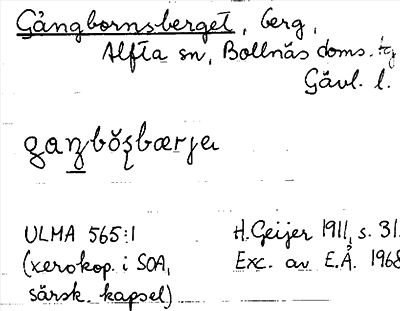 Gångbornsberget, berg,
Alfta sn, Bollnäs doms. tg
Gävl. l.
ULMA 565:1
(xerokop. i SOA,
särsk. kapsel)
H. Geijer 1911, s. 31.
Exc. av E.Å. 1968